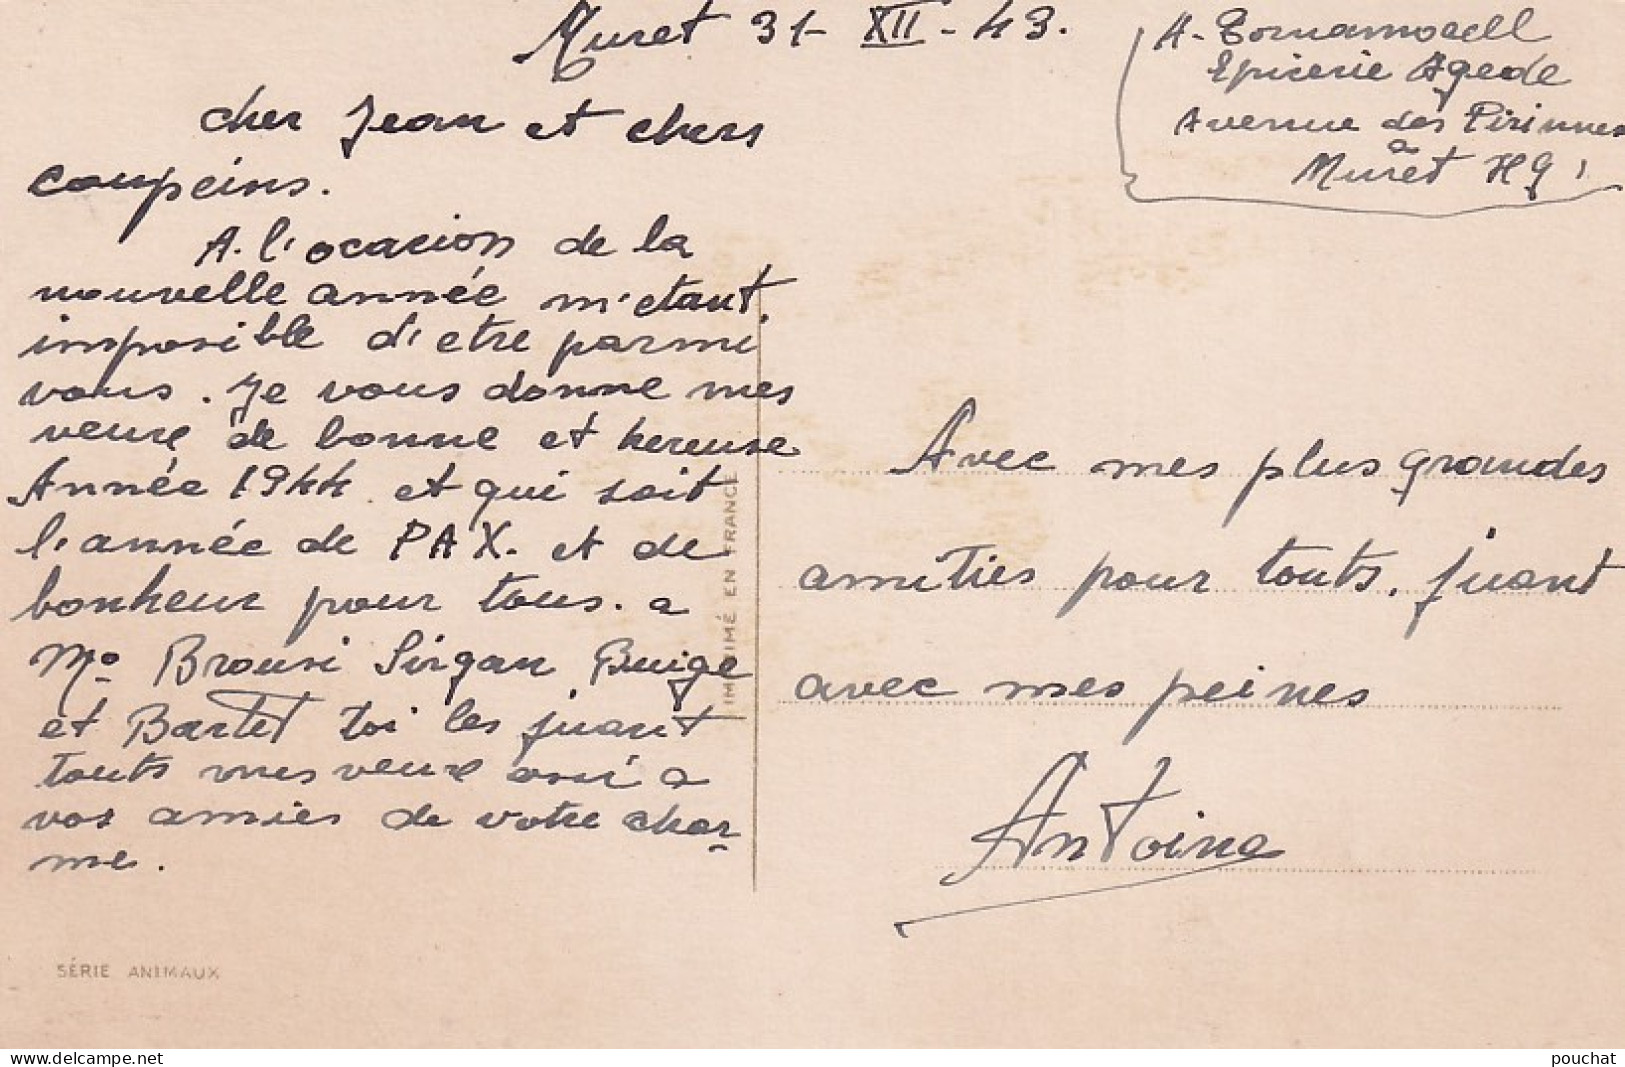 Muret 31- XII - 43.
A. Tornamorell
Episerie Agede
Avenue des Pirinnes
a
Muret HG
cher Jean et chers
coupeins.
A. l'ocacion de la
nouvelle année m'etant
imposible d'etre parmi
vous. Je vous donne mes
veux de bonne et hereuse
Année 1944 et qui soit
l'année de PAX. et de
bonheur pour tous. a
Mo Brousi Sirgan Buige
et Bartet toi les juant
touts mes veux ausi a
vos amies de votre char
me.
Avec mes plus grandes
amities pour touts. juant
avec mes peines
Antoine
IMPRIMÉ EN FRANCE
SÉRIE ANIMAUX
www.delcampe.net
pouchat